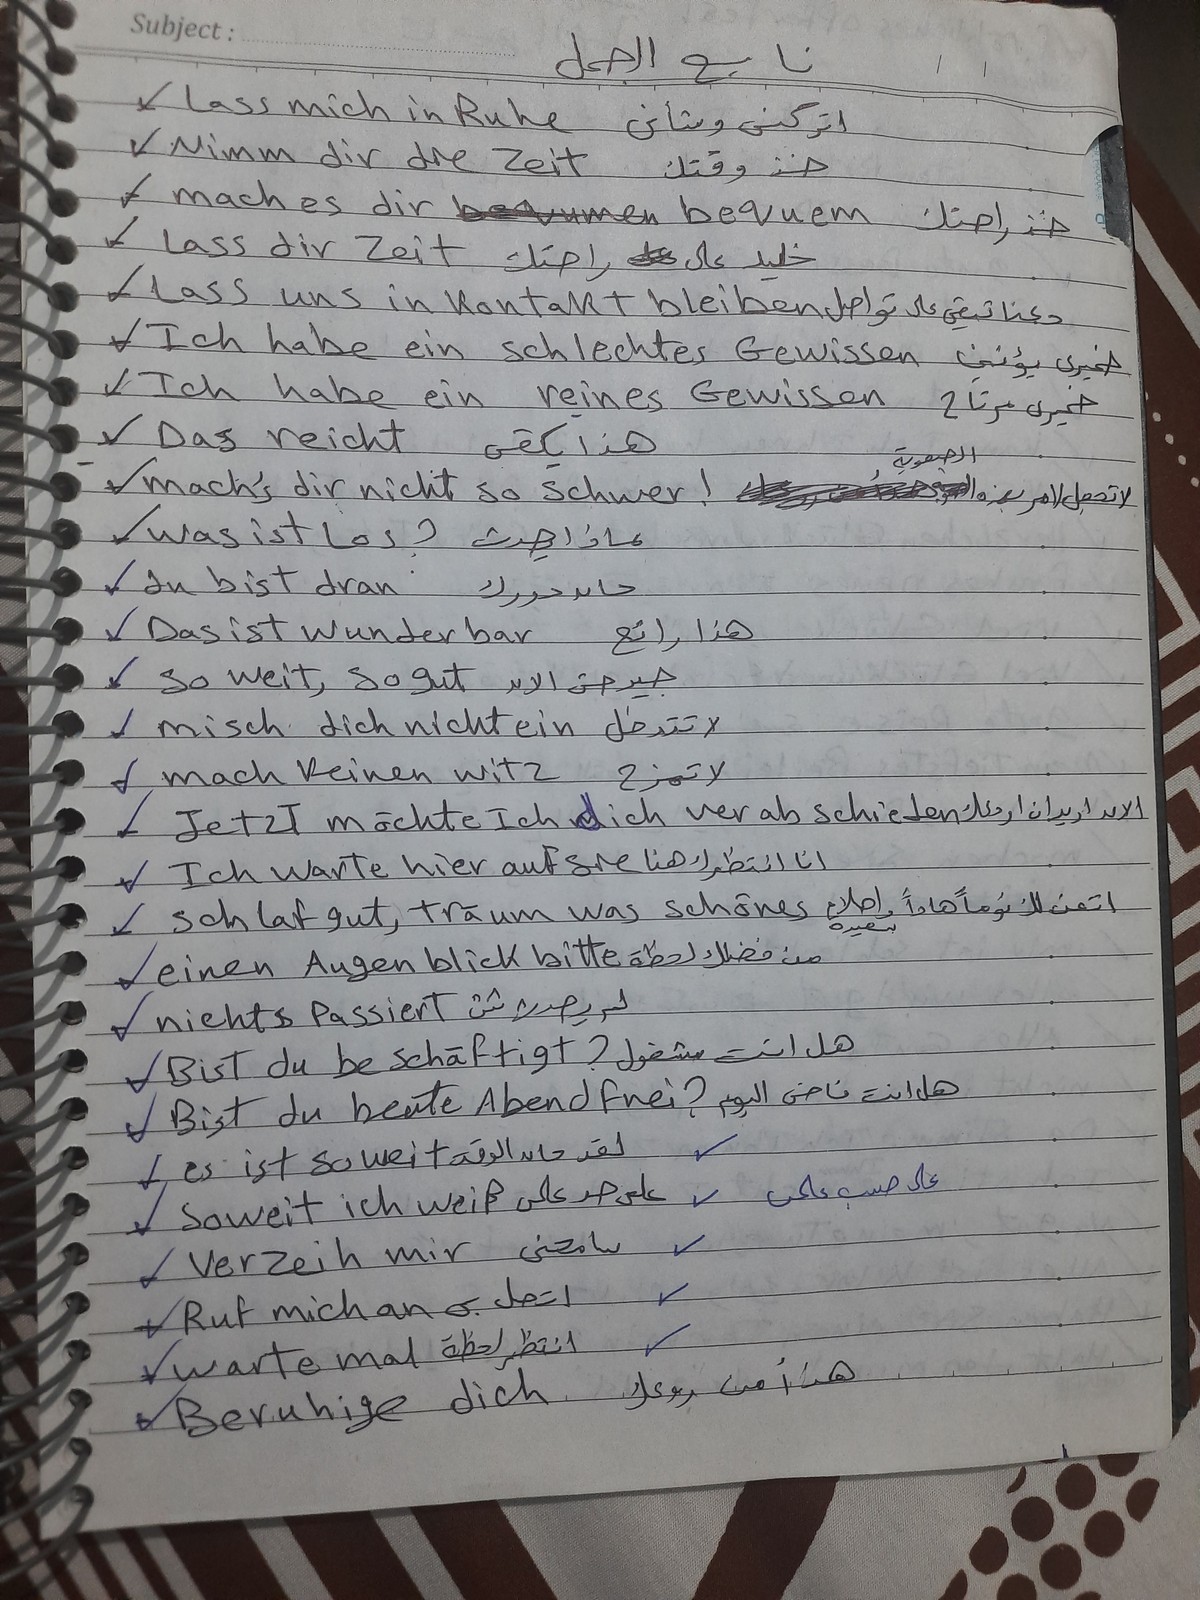 Subject :
تابع الجمل
Lass mich in Ruhe اتركني وشأني
Nimm dir die Zeit خذ وقتك
mach es dir bequem خذ راحتك
Lass dir Zeit خليك على راحتك
Lass uns in Kontakt bleiben دعنا نبقى على تواصل
Ich habe ein schlechtes Gewissen ضميري يؤنبني
Ich habe ein reines Gewissen ضميري مرتاح
Das reicht هذا يكفي
mach's dir nicht so schwer! لا تجعل الامر بهذه الصعوبة
was ist los? ماذا يحدث
du bist dran حان دورك
Das ist wunderbar هذا رائع
so weit, so gut جيد حتى الان
misch dich nicht ein لا تتدخل
mach keinen witz لا تمزح
Jetzt möchte Ich dich verabschieden الان اريد ان اودعك
Ich warte hier auf Sie انا انتظرك هنا
schlaf gut, träum was schönes اتمنى لك نوماً هادئاً واحلام سعيدة
einen Augenblick bitte من فضلك لحظة
nichts Passiert لم يحدث شئ
Bist du beschäftigt? هل انت مشغول
Bist du heute Abend frei? هل انت فاضى اليوم
es ist soweit لقد حان الوقت
Soweit ich weiß على حد علمى على حسب علمى
Verzeih mir سامحنى
Ruf mich an اتصل بى
warte mal انتظر لحظة
Beruhige dich هذأ من روعك